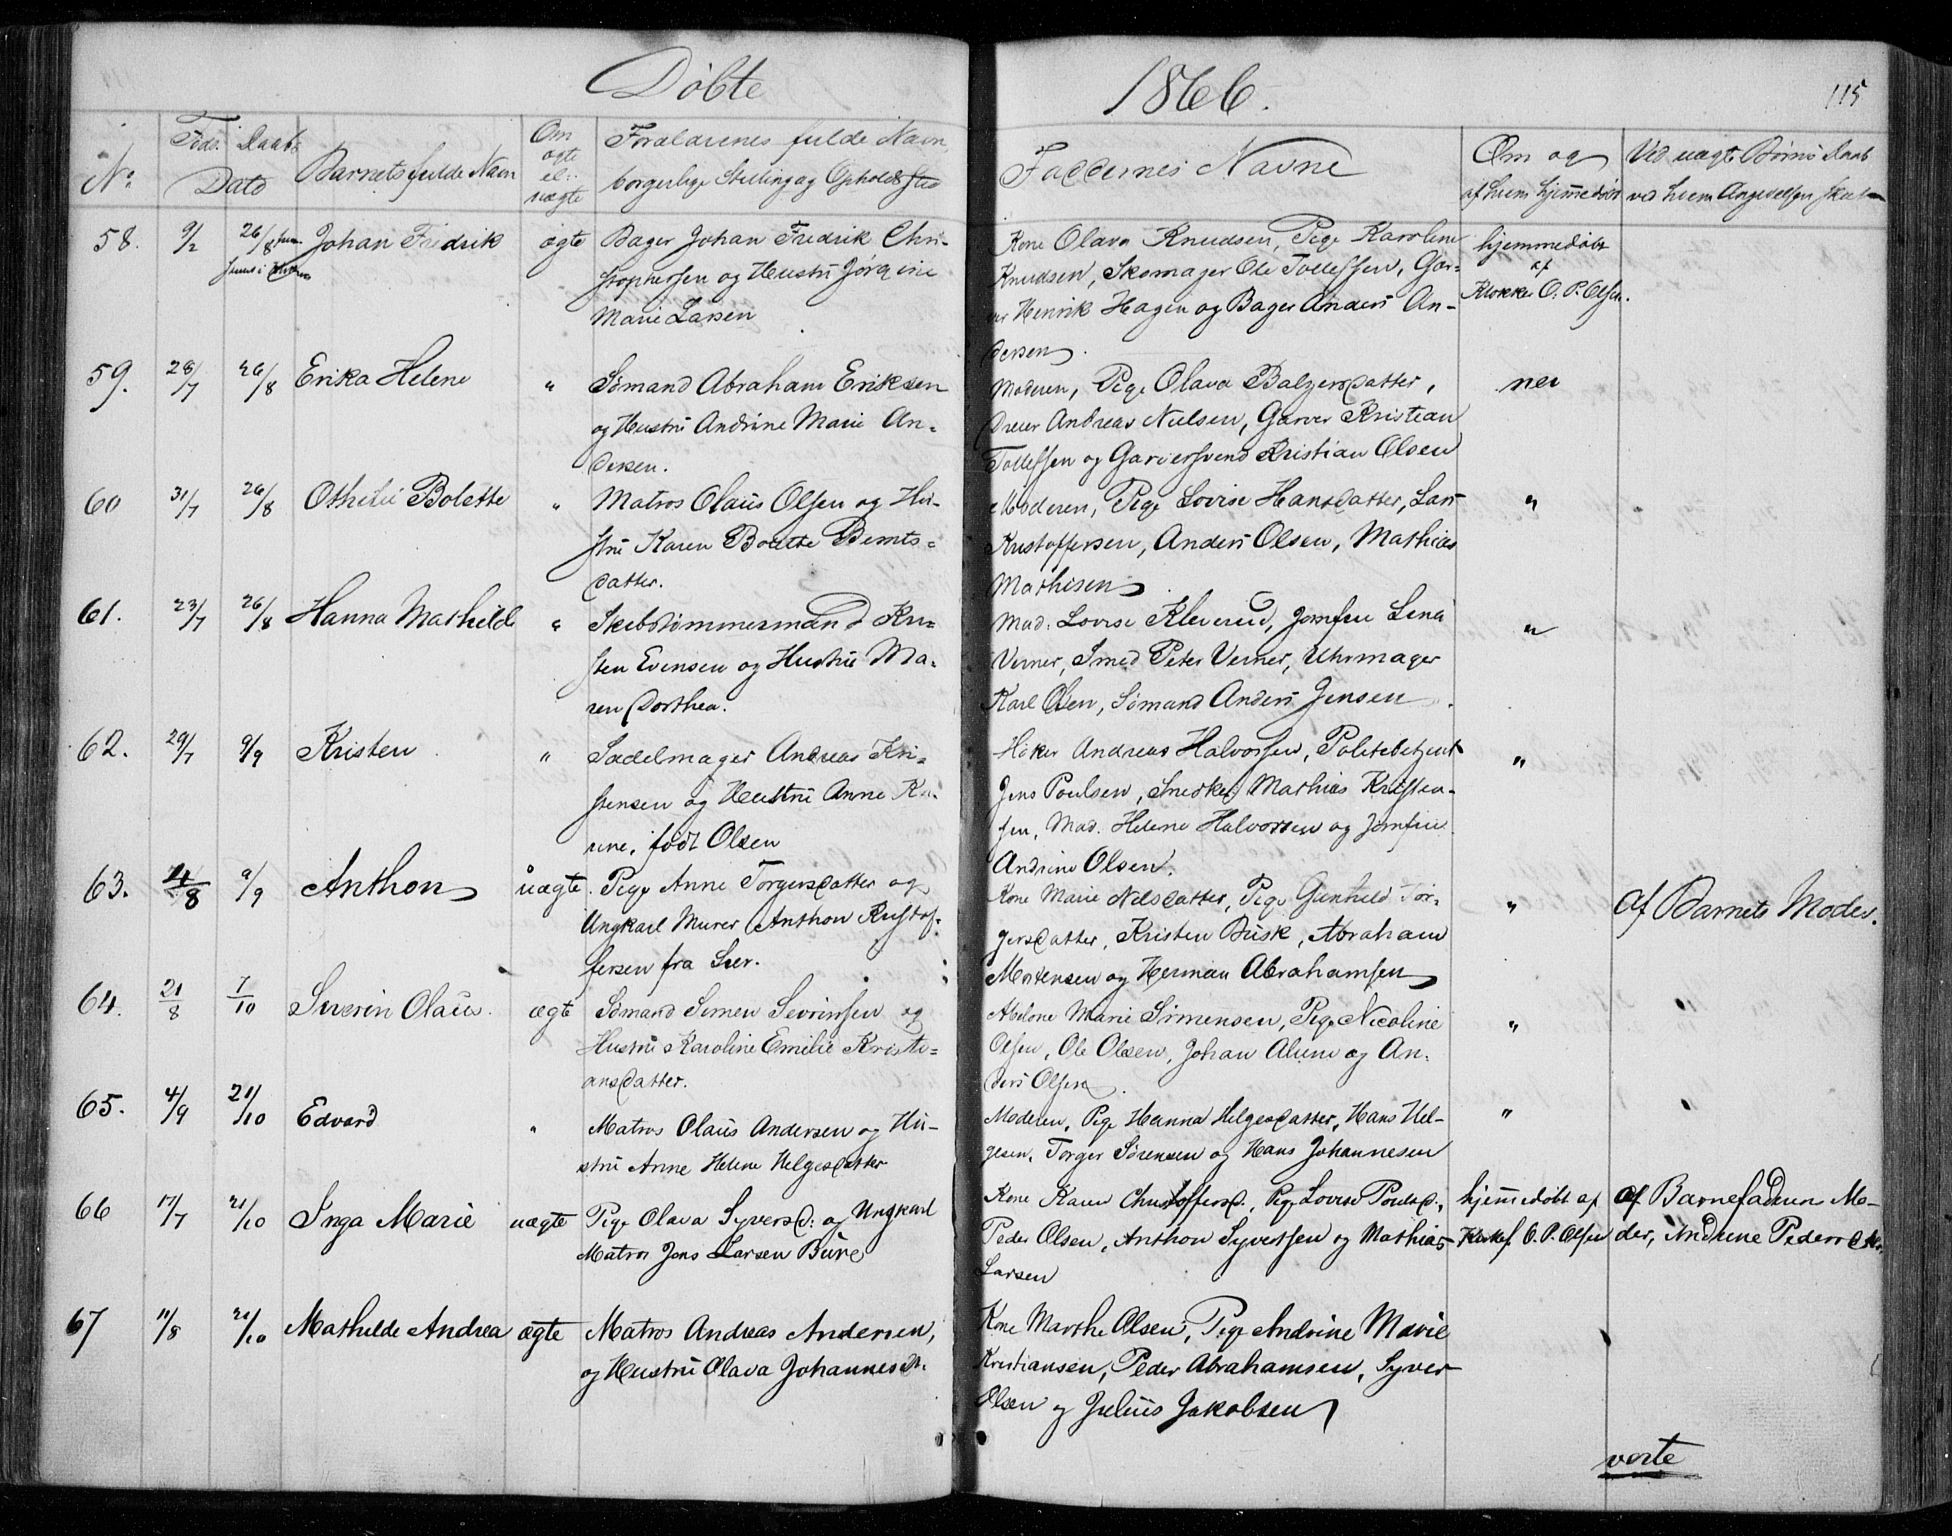 Döbte
1866.
115
No
Føds. Daabs
Dato
Barnets fulde Navn
Om
ægte
el.
uægte
Forældrenes fulde Navn,
borgerlige Stilling og Opholdssted
Faddernes Navne
Om og
af hvem hjemmedøbt
Ved uægte Børns Daab
ved hvem Angivelsen skal
58. 9/2 26/8 Johan Fredrik ægte Bager Johan Fredrik Chri-
stophersen og Hustru Jörgine
Marie Larsen
Kone Olava Knudsen, Pige Karoline
Knudsen, Skomager Ole Tollefsen, Gar-
ver Henrik Hagen og Bager Anders An-
dersen.
hjemmedøbt
af
Klokker O. P. Olsen.
59. 28/7 26/8 Erika Helene " Sømand Abraham Eriksen
og Hustru Andrine Marie An-
dersen.
Moderen, Pige Olava Balzersdatter,
Dreier Andreas Nielsen, Garver Kristian
Tollefsen og Garversvend Kristian Olsen
nei
60 31/7 26/8 Othelie Bolette " Matros Olaus Olsen og Hu-
stru Karen Bolette Bernts-
datter.
Moderen, Pige Lovise Hansdatter, Lars
Kristoffersen, Anders Olsen, Mathias
Mathisen
"
61. 23/7 26/8 Hanna Mathilde " Skibstømmermand Kri-
sten Evensen og Hustru Ma-
ren Dorthea.
Mad. Lovise Kleverud, Jomfru Lina
Verner, Smed Peter Verner, Uhrmager
Karl Olsen, Sömand Anders Jensen
"
62. 29/7 9/9 Kristen " Sadelmager Andreas Kri-
stensen og Hustru Anne Ka-
rine, født Olsen
Høker Andreas Halvorsen, Politebetjent
Jens Poulsen, Snedker Mathias Kristen-
sen, Mad. Helene Halvorsen og Jomfru
Andrine Olsen.
"
63. 4/8 9/9 Anthon uægte. Pige Anne Torgersdatter og
Ungkarl Murer Anthon Kristof-
fersen fra Lier.
Kone Marie Nilsdatter, Pige Gunhild Tor-
gersdatter, Kristen Busk, Abraham
Mortensen og Herman Abrahamsen
"
Af Barnets Moder.
64. 21/8 7/10 Severin Olaus. ægte Sømand Simen Sevrinsen og
Hustru Karoline Emilie Kristi-
ansdatter.
Abelone Marie Simensen, Pige Nicoline
Olsen, Ole Olsen, Johan Alum og An-
ders Olsen
"
"
65. 4/9 21/10 Edvard " Matros Olaus Andersen og Hu-
stru Anne Helene Helgesdatter
Moderen, Pige Hanna Helgesdatter, Hans Hel-
gesen, Torger Sørensen og Hans Johannesen
"
"
66 17/7 21/10 Inga Marie uægte Pige Olava Syversd. og Ungkarl
Matros Jens Larsen Bure
Kone Karen Christoffersd., Pige Lovise Poulsd.,
Peder Olsen, Anthon Syvertsen og Mathias
Larsen
hjemmedøbt af
Kirkes. O. P. Olsen
Af Barnefaderens Mo-
der, Andrine Pedersdtr.
67 11/8 21/10 Mathilde Andrea ægte Matros Andreas Andersen,
og Hustru Olava Johannesdtr.
Kone Marthe Olsen, Pige Andrine Marie
Kristiansen, Peder Abrahamsen, Syver
Olsen og Julius Jakobsen
verte